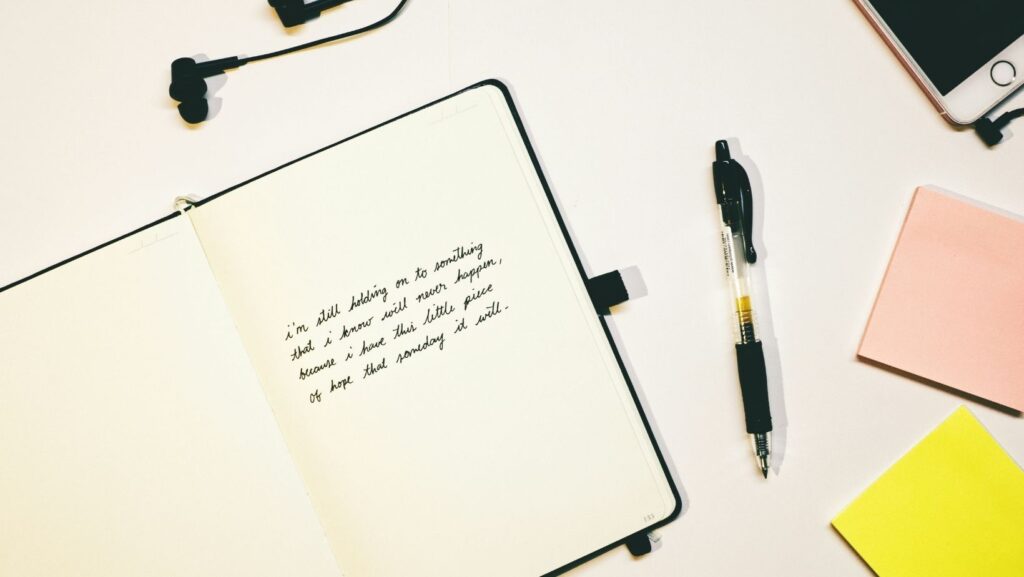 i'm still holding on to something
that i know will never happen,
because i have this little piece
of hope that someday it will.